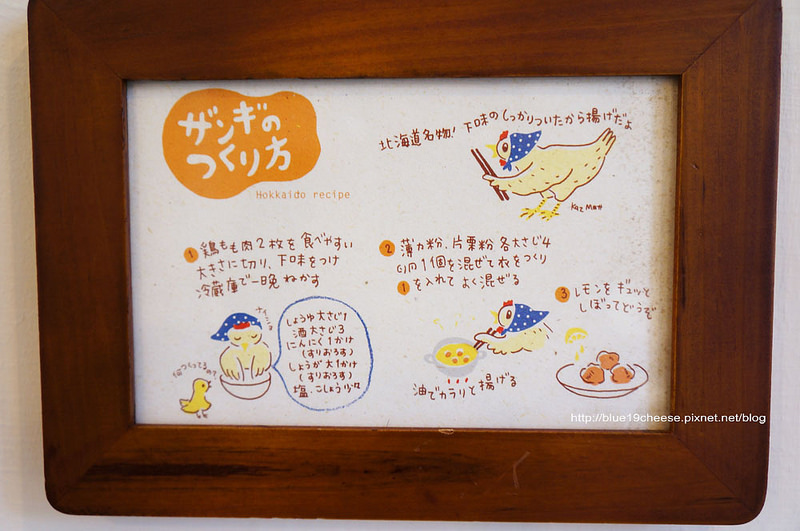 ザンギの
つくり方
Hokkaido recipe
北海道名物! 下味のしっかりついたから揚げだよ
Kaz Matt
1 鶏もも肉2枚を食べやすい
大きさに切り、下味をつけ
冷蔵庫で一晩ねかす
しょうゆ大さじ1
酒大さじ3
にんにく1かけ
(すりおろす)
しょうが大1かけ
(すりおろす)
塩、こしょう少々
何つくってるの?
2 薄力粉、片栗粉 各大さじ4
卵1個を混ぜて衣をつくり
1を入れてよく混ぜる
油でカラリと揚げる
3 レモンをギュッと
しぼってどうぞ
http://blue19cheese.pixnet.net/blog